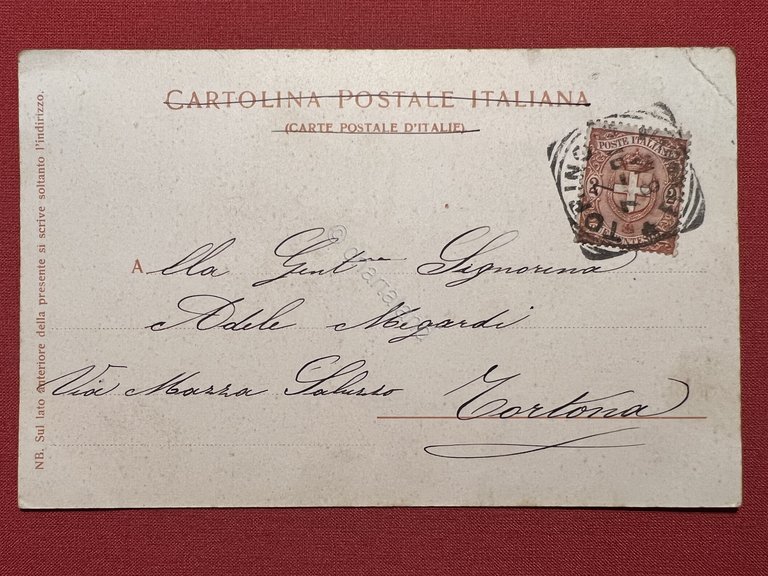 CARTOLINA POSTALE ITALIANA
(CARTE POSTALE D'ITALIE)
POSTE ITALIANE
2 2
TORINO
Alla Gent.ma Signorina
Adele Megardi
Via Mazza Saluzzo Tortona
NB. Sul lato anteriore della presente si scrive soltanto l'indirizzo.